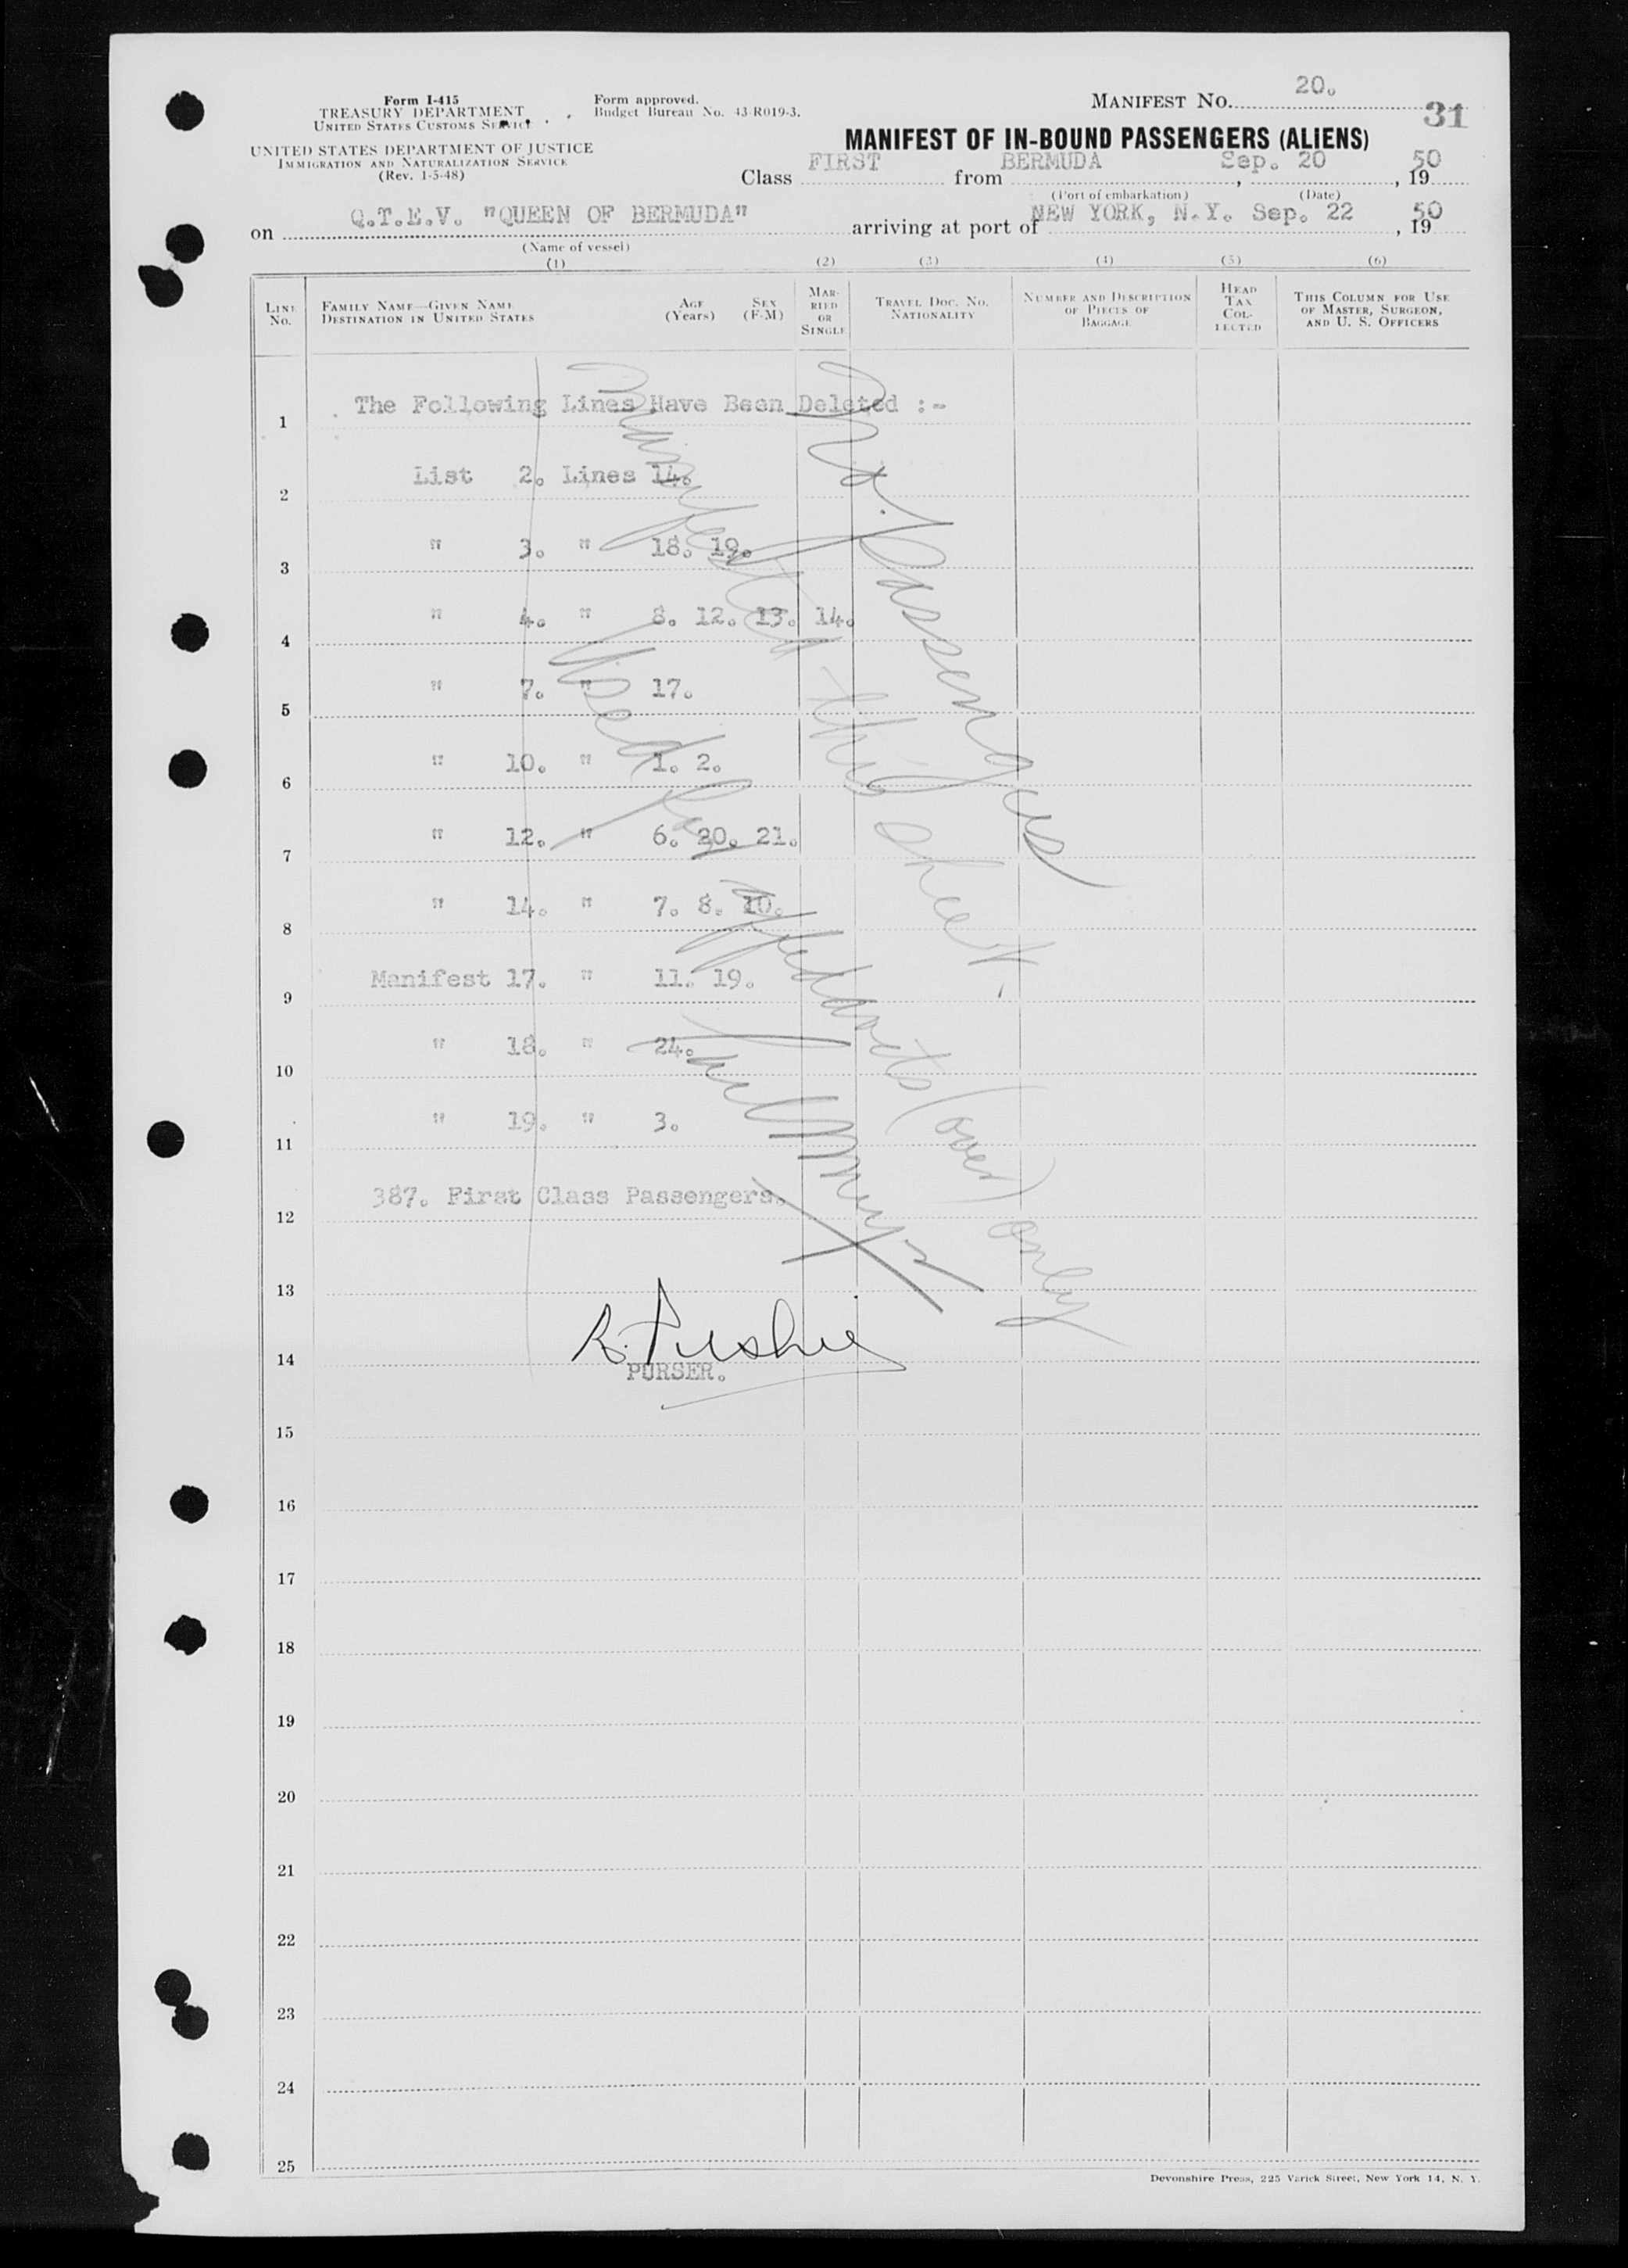 Form I-415
TREASURY DEPARTMENT
UNITED STATES CUSTOMS SERVICE
Form approved.
Budget Bureau No. 43-R019-3.
MANIFEST NO. 20.
31
UNITED STATES DEPARTMENT OF JUSTICE
IMMIGRATION AND NATURALIZATION SERVICE
(Rev. 1-5-48)
MANIFEST OF IN-BOUND PASSENGERS (ALIENS)
Class FIRST from BERMUDA, Sep. 20, 1950
(Port of embarkation) (Date)
on Q.T.E.V. "QUEEN OF BERMUDA" arriving at port of NEW YORK, N.Y. Sep. 22, 1950
(Name of vessel)
(1) (2) (3) (4) (5) (6)
LINE No.
FAMILY NAME—GIVEN NAME
DESTINATION IN UNITED STATES
AGE (Years)
SEX (F-M)
MARRIED OR SINGLE
TRAVEL DOC. NO. NATIONALITY
NUMBER AND DESCRIPTION OF PIECES OF BAGGAGE
HEAD TAX COLLECTED
THIS COLUMN FOR USE OF MASTER, SURGEON, AND U. S. OFFICERS
1 The Following Lines Have Been Deleted :-
2 List 2. Lines 14.
3 " 3. " 18. 19.
4 " 4. " 8. 12. 13. 14.
5 " 7. " 17.
6 " 10. " 1. 2.
7 " 12. " 6. 20. 21.
8 " 14. " 7. 8. 10.
9 Manifest 17. " 11. 19.
10 " 18. " 24.
11 " 19. " 3.
12 387. First Class Passengers.
13
14 PURSER.
15
16
17
18
19
20
21
22
23
24
25
No. passengers
manifested this sheet
Used for affidavits (over) only
Devonshire Press, 225 Varick Street, New York 14, N. Y.